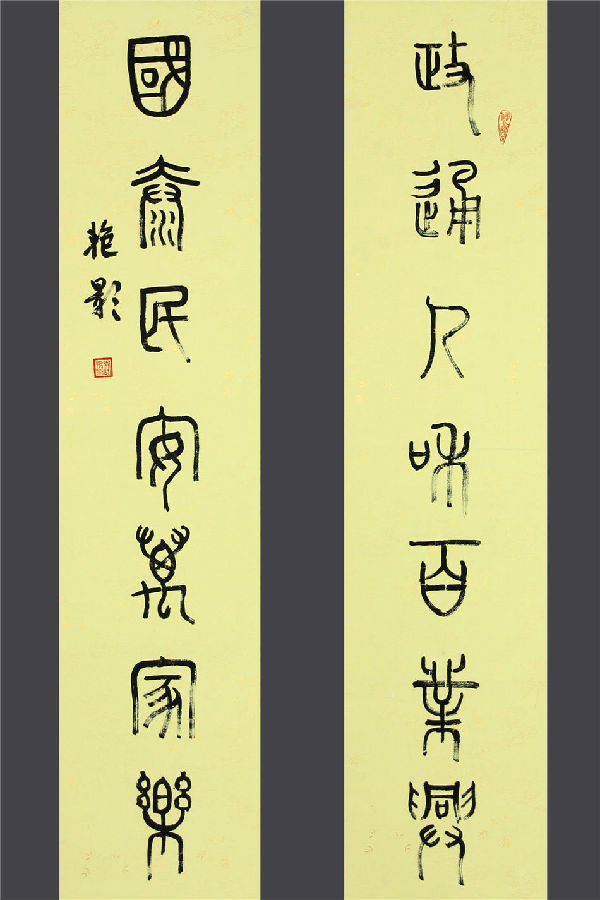 政通人和百業興
國泰民安萬家樂
艷影